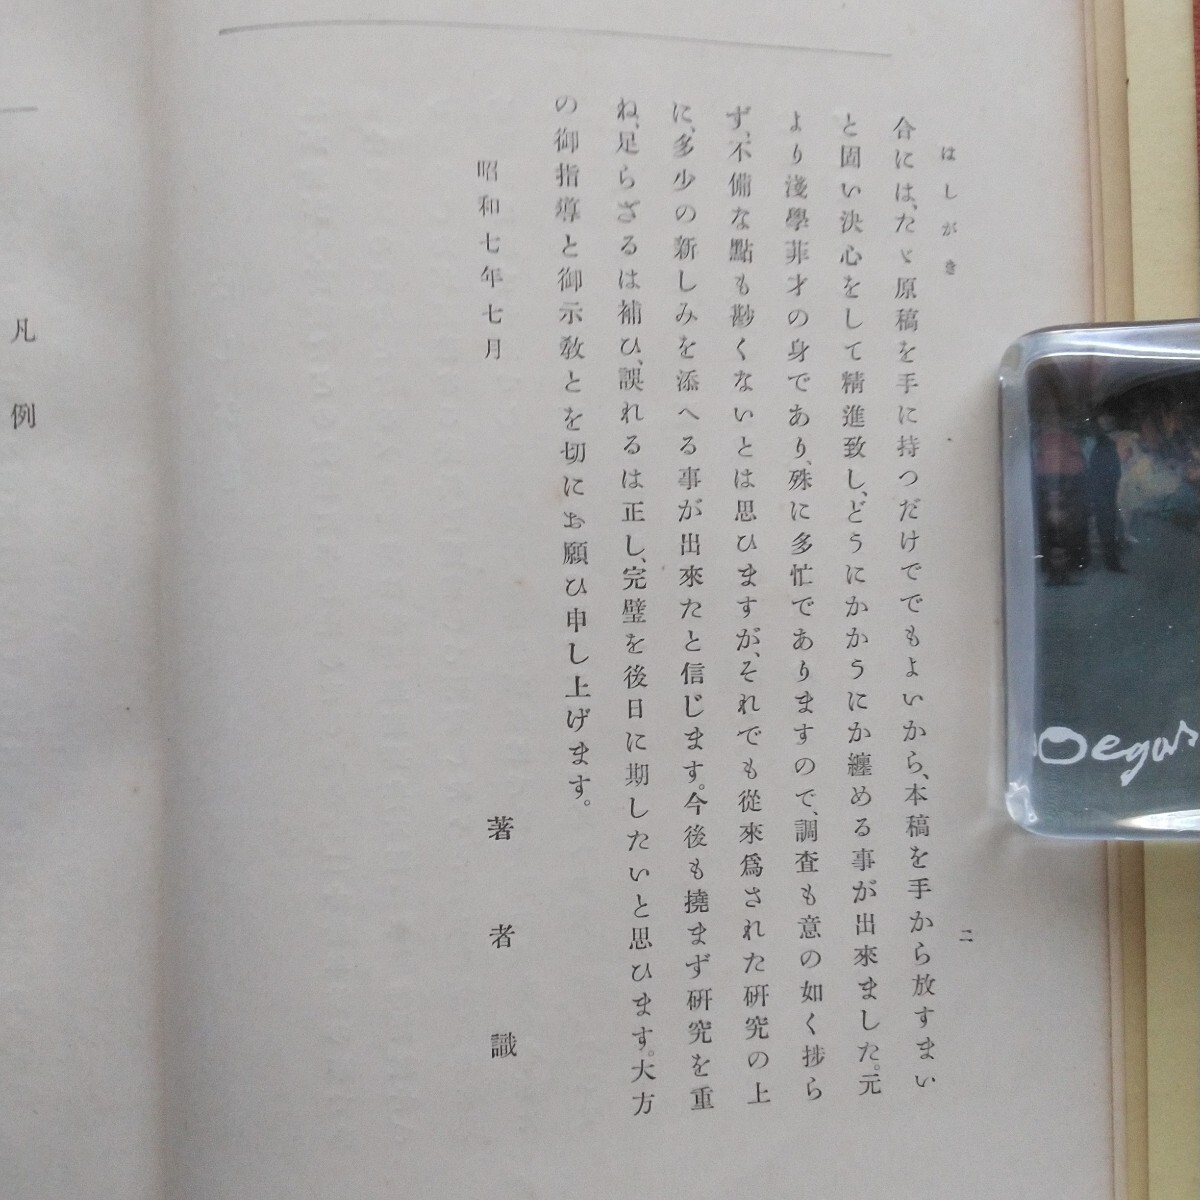 はしがき
二
合には、たゞ原稿を手に持つだけででもよいから、本稿を手から放すまい
と固い決心をして精進致し、どうにかかうにか纏める事が出來ました。元
より淺學菲才の身であり、殊に多忙でありますので、調査も意の如く捗ら
ず、不備な點も尠くないとは思ひますが、それでも從來爲された硏究の上
に、多少の新しみを添へる事が出來たと信じます。今後も撓まず硏究を重
ね、足らざるは補ひ、誤れるは正し、完璧を後日に期したいと思ひます。大方
の御指導と御示敎とを切にお願ひ申し上げます。
昭和七年七月
著者識
凡例
Degas